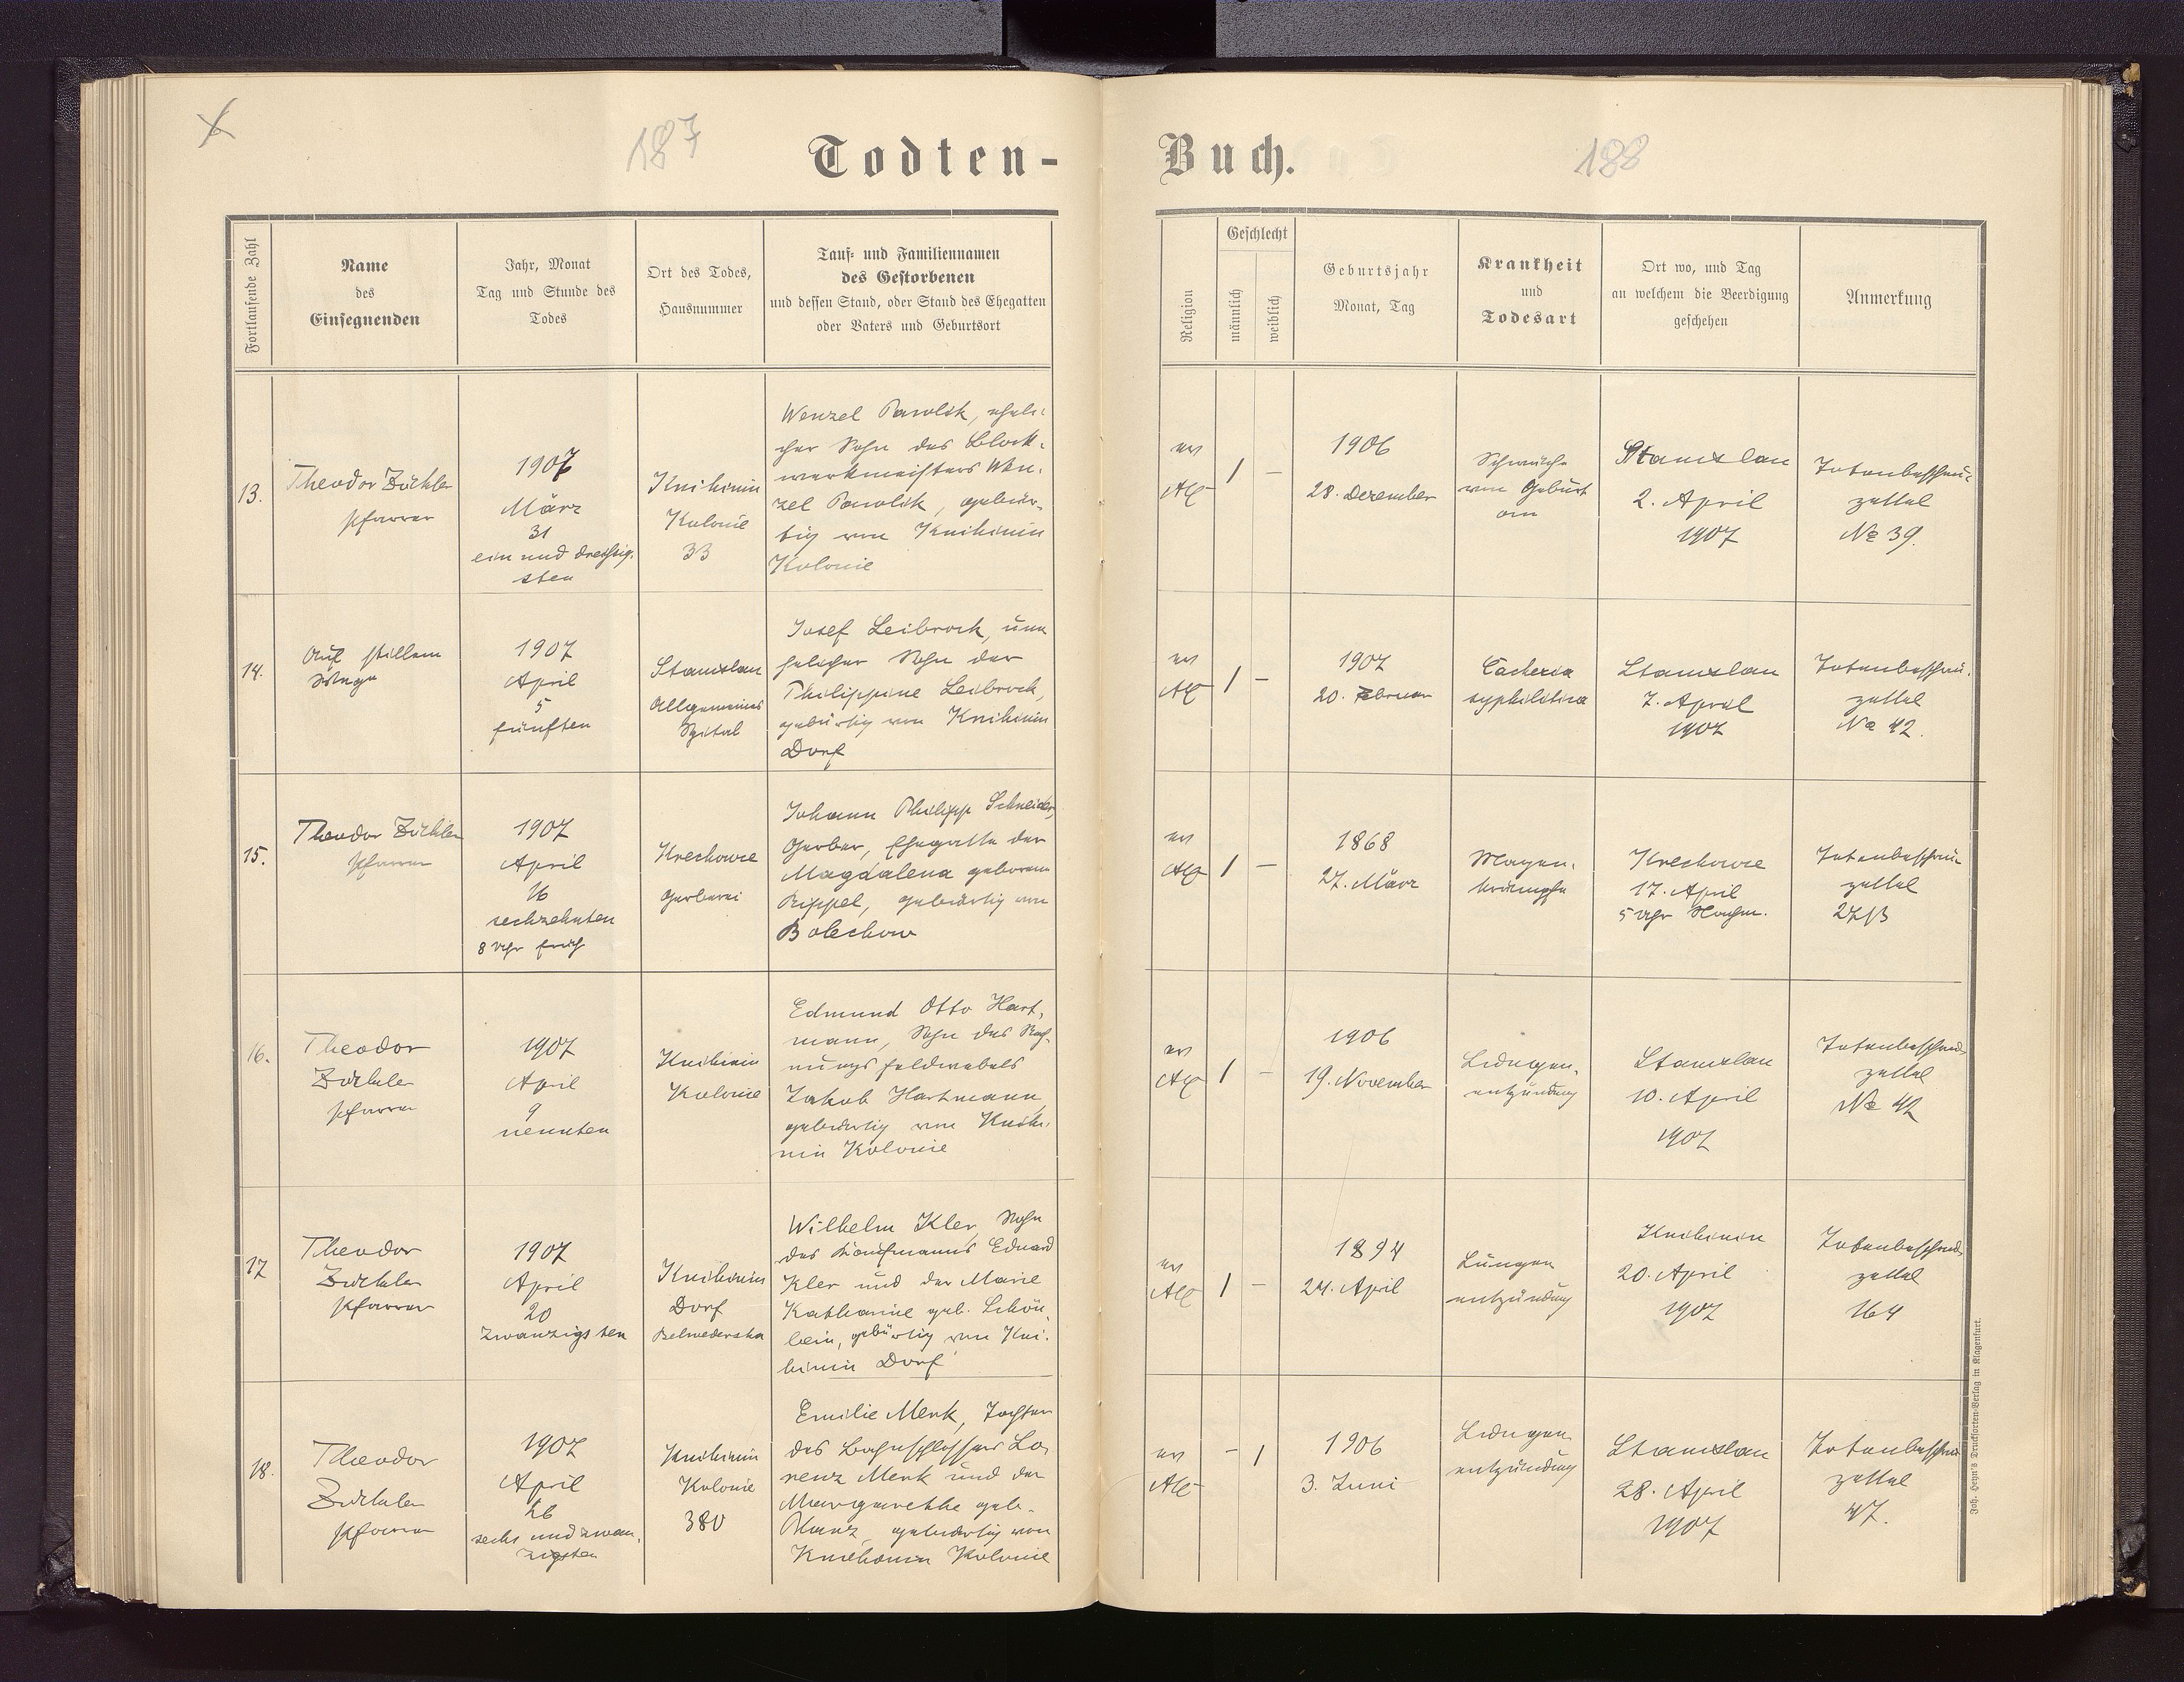 187
Todten-
Buch.
188
Fortlaufende Zahl
Name
des
Einsegnenden
Jahr, Monat
Tag und Stunde des
Todes
Ort des Todes,
Hausnummer
Tauf- und Familiennamen
des Gestorbenen
und dessen Stand, oder Stand des Ehegatten
oder Vaters und Geburtsort
Religion
Geschlecht
männlich
weiblich
Geburtsjahr
Monat, Tag
Krankheit
und
Todesart
Ort wo, und Tag
an welchem die Beerdigung
geschehen
Anmerkung
13.
Theodor Zöckler
Pfarrer
1907
März
31
ein und dreißig-
sten
Knihinin
Kolonie
33
Wenzel Pawlik, eheli-
cher Sohn des Block-
werkmeisters Wen-
zel Pawlik, gebür-
tig von Knihinin
Kolonie
ev
AB
1 –
1906
28. Dezember
Schwäche
von Geburt
an
Stanislau
2. April
1907
Totenbeschau-
zettel
No 39.
14.
Auf stillem
Wege
1907
April
5
fünften
Stanislau
Allgemeines
Spital
Josef Leibrock, une-
helicher Sohn der
Philippine Leibrock,
gebürtig von Knihinin
Dorf
ev
AB
1 –
1907
20. Februar
Cachexia
syphilitica
Stanislau
7. April
1907
Totenbeschau-
zettel
No 42.
15.
Theodor Zöckler
Pfarrer
1907
April
16
sechzehnten
8 Uhr früh
Krechowce
Gerberei
Johann Philipp Schneider,
Gerber, Ehegatte der
Magdalena geborene
Rippel, gebürtig von
Bolechow
ev
AB
1 –
1868
27. März
Magen-
krämpfe
Krechowce
17. April
5 Uhr Nachm.
Totenbeschau-
zettel
16.
Theodor
Zöckler
Pfarrer
1907
April
9
neunten
Knihinin
Kolonie
Edmund Otto Hart-
mann, Sohn des Rech-
nungsfeldwebels
Jakob Hartmann,
gebürtig von Knihi-
nin Kolonie
ev
AB
1 –
1906
19. November
Lungen-
entzündung
Stanislau
10. April
1907
Totenbeschau-
zettel
No 42
17
Theodor
Zöckler
Pfarrer
1907
April
20
zwanzigsten
Knihinin
Dorf
Belwederska
Wilhelm Kler, Sohn
des Kaufmanns Eduard
Kler und der Marie
Katharine geb. Schön-
bein, gebürtig von Kni-
hinin Dorf
ev
AB
1 –
1894
24. April
Lungen
entzündung
Knihinin
20. April
1907
Totenbeschau-
zettel
164
18.
Theodor
Zöckler
Pfarrer
1907
April
26
sechs und zwan-
zigsten
Knihinin
Kolonie
380
Emilie Merk, Tochter
des Bahnschlossers Lo-
renz Merk und der
Margarethe geb.
Manz, gebürtig von
Knihinin Kolonie
ev
AB
– 1
1906
3. Juni
Lungen
entzündung
Stanislau
28. April
1907
Totenbeschau-
zettel
47.
Joh. Heyn's Drucksorten-Verlag in Klagenfurt.